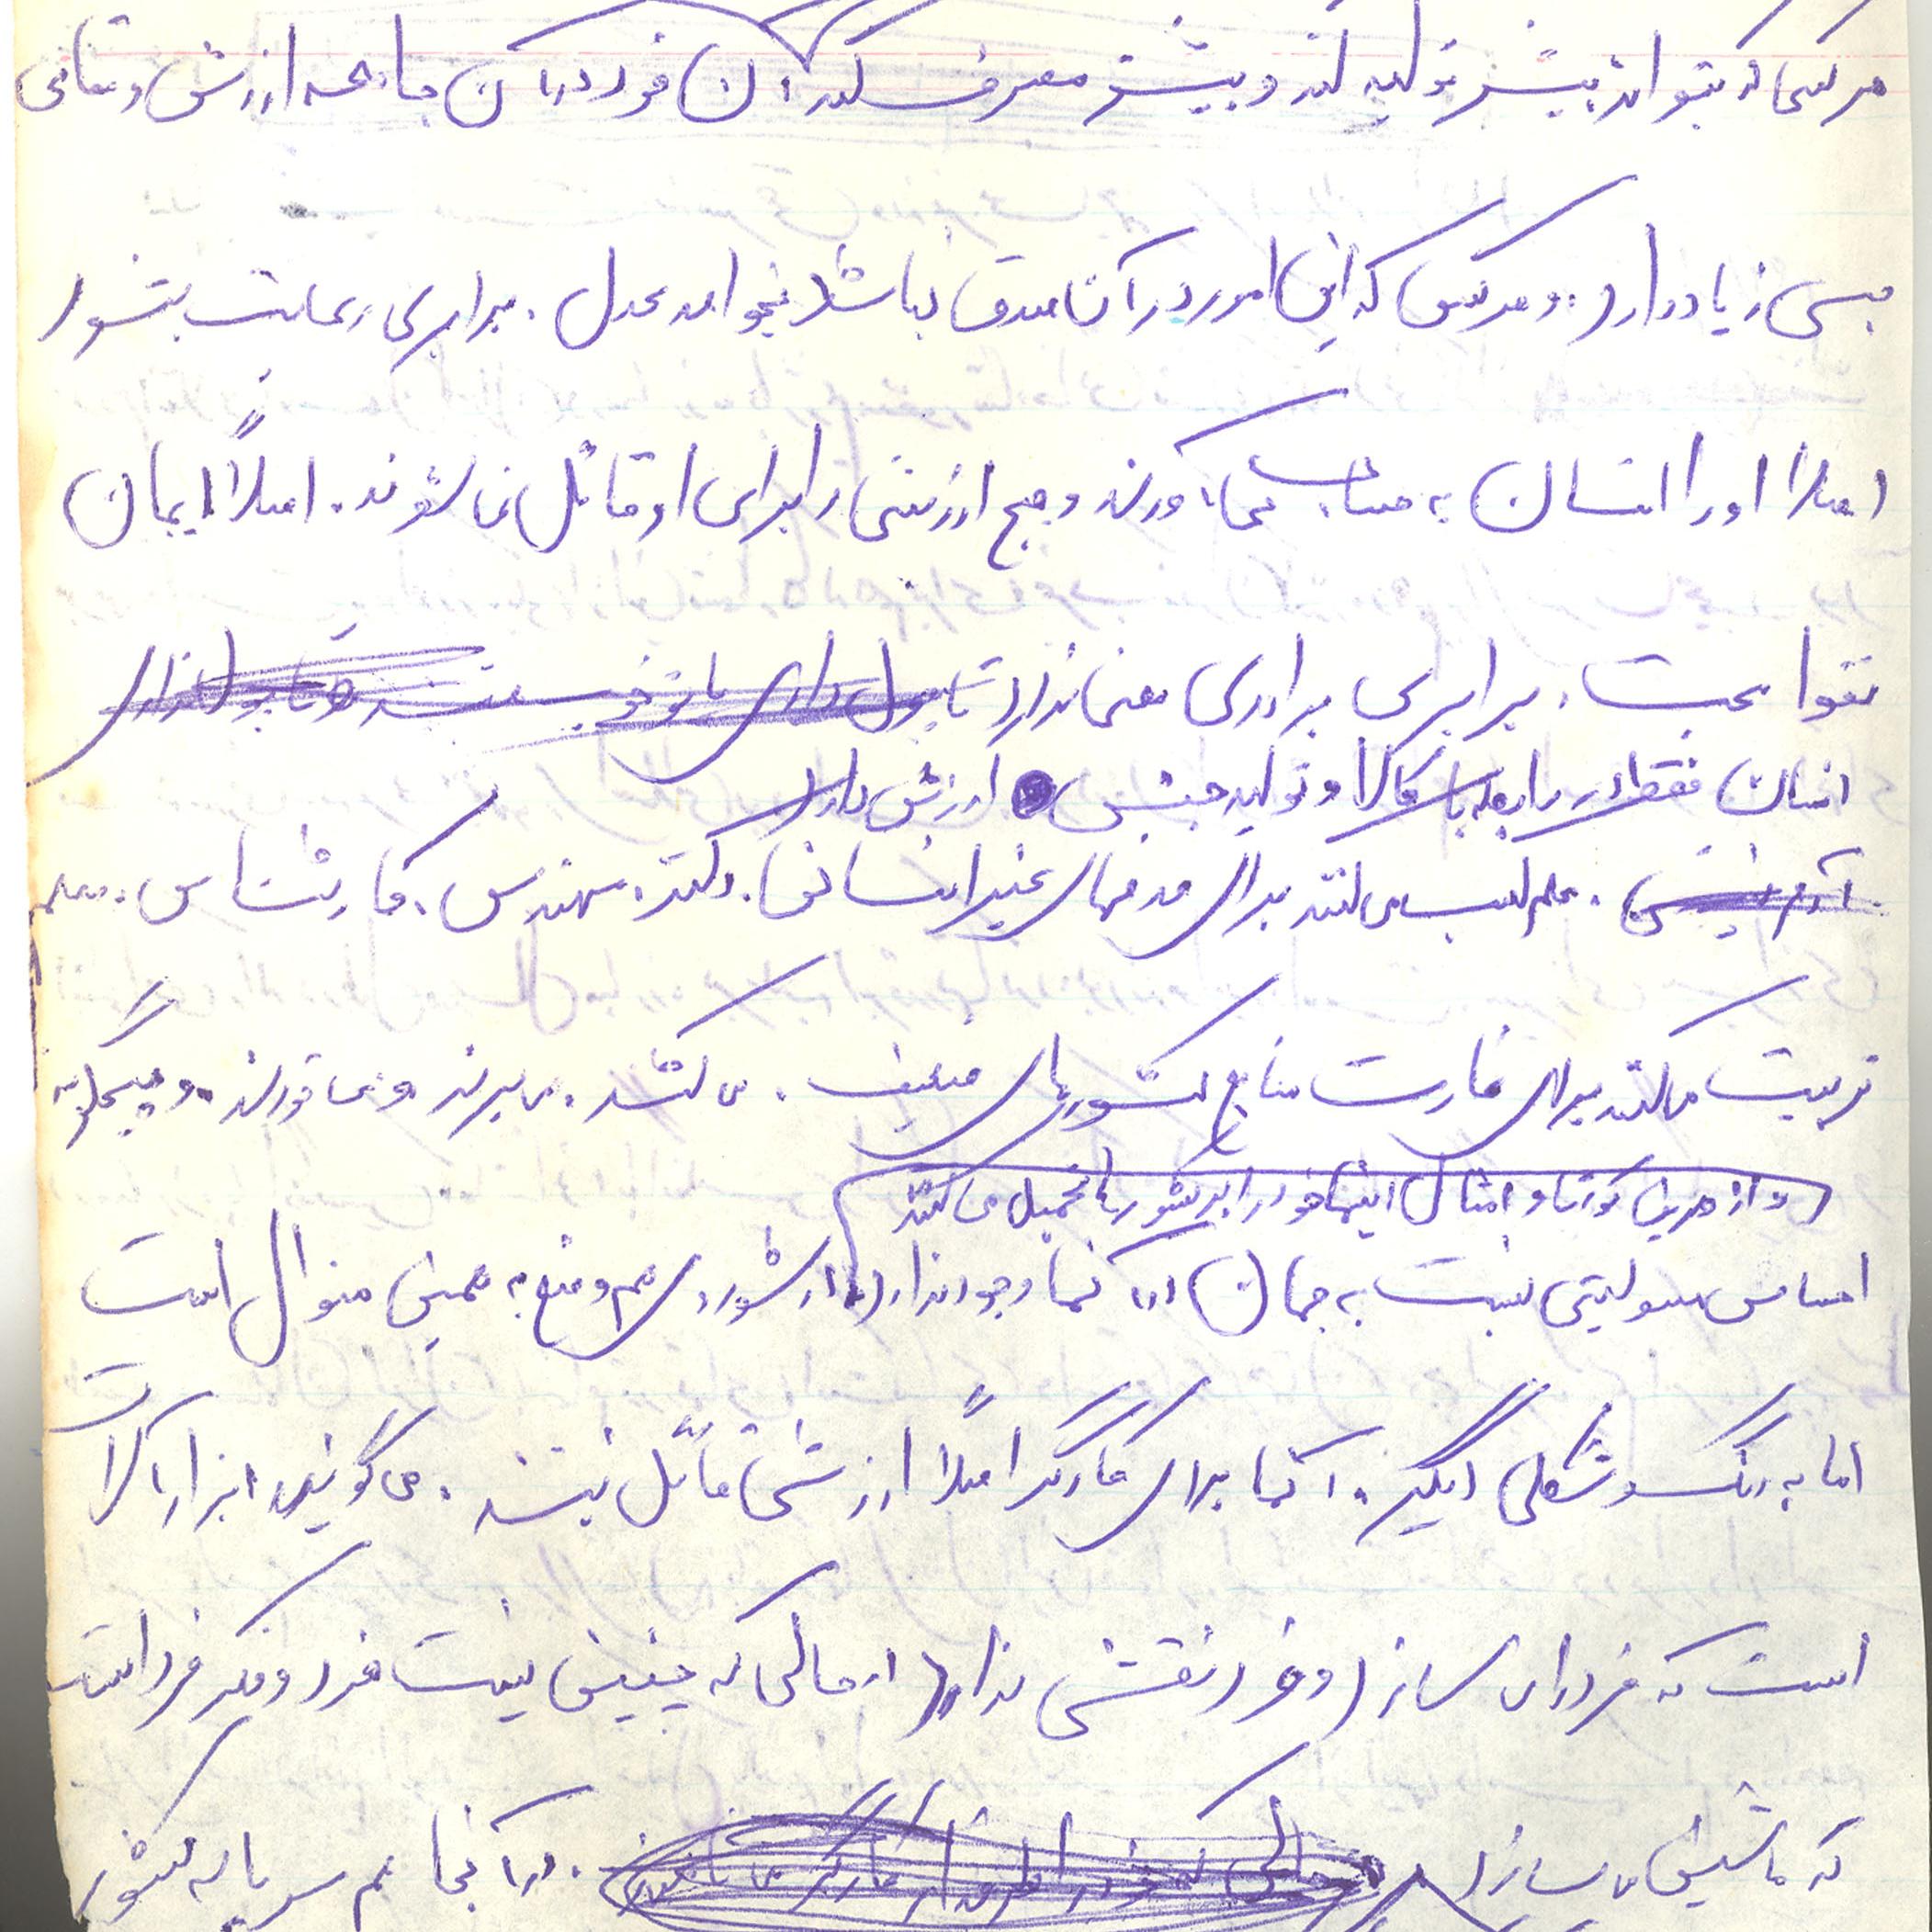 هر کسی که بتواند بیشتر تولید کند و بیشتر مصرف کند آن فرد در آن جامعه ارزش و مقامی
بسی زیاد دارد. و هر کس که این امور در آن صدق نباشد نخواهد عدل. برابری رعایت بشود
اصلا او را انسان به حساب نمی‌آورند و هیچ ارزشی را برای او قائل نمی‌شوند. اصلاً ایمان
تقوا محبت. برابری برادری معنی ندارد تا پول داری
انسان فقط در رابطه با کالا و تولید جنس ارزش دارد
علم کسب می‌کنند برای هدفهای غیر انسانی. دکتر. مهندس. کارشناس. معلم
تربیت می‌کنند برای غارت منابع کشورهای ضعیف. می‌کشند. می‌برند و می‌خورند. و هیچگونه
و از طریق کودتا و امثال اینها خود را بر کشورها تحمیل می‌کنند
احساس مسئولیتی نسبت به جهان در آنها وجود ندارد. در شوروی هم وضع به همین منوال است
اما به رنگ و شکلی دیگر. آنها برای کارگر اصلاً ارزشی قائل نیستند. می‌گویند ابزار آلات
است که فرد را می‌سازد و فرد نقشی ندارد در حالی که چنین نیست فرد و فکر فرد است
که ماشین می‌سازد. در آنجا هم سرمایه کشور